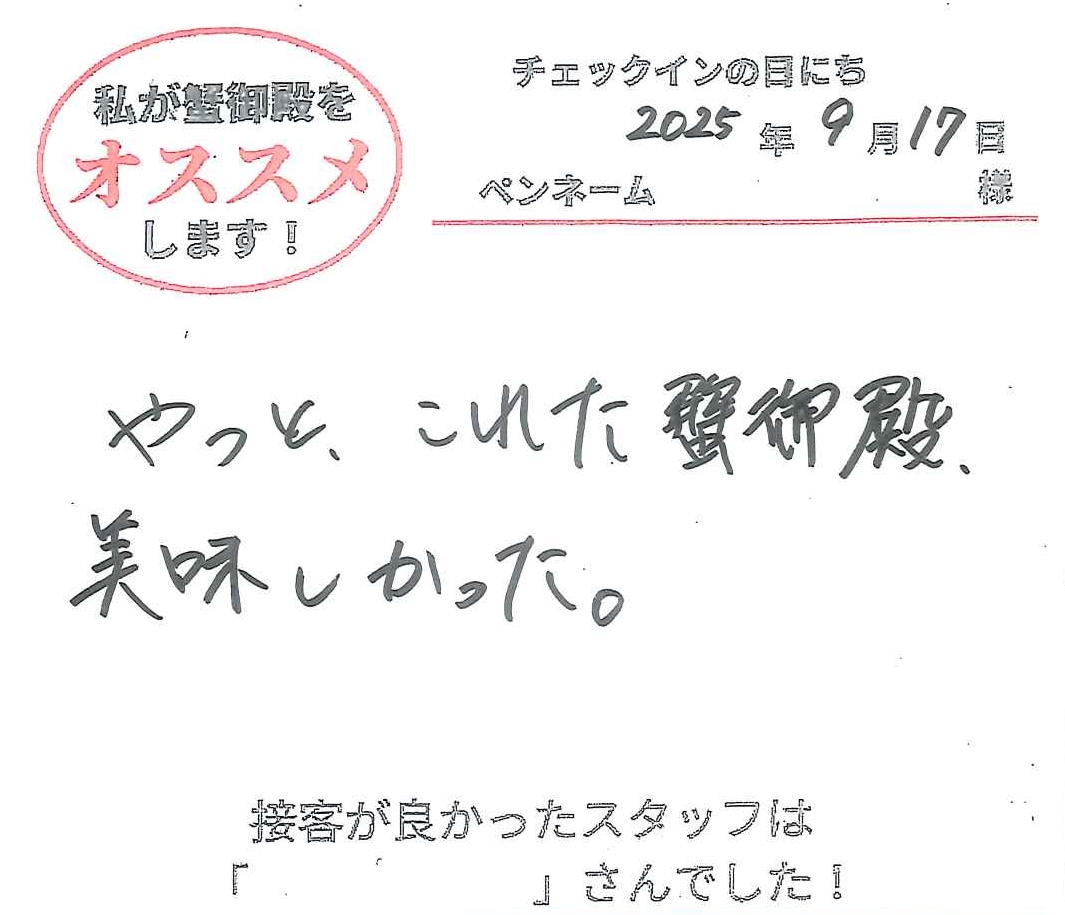 私が蟹御殿を
オススメ
します！
チェックインの日にち
2025年9月17日
ペンネーム 様
やっと、これた蟹御殿、
美味しかった。
接客が良かったスタッフは
「 」さんでした！